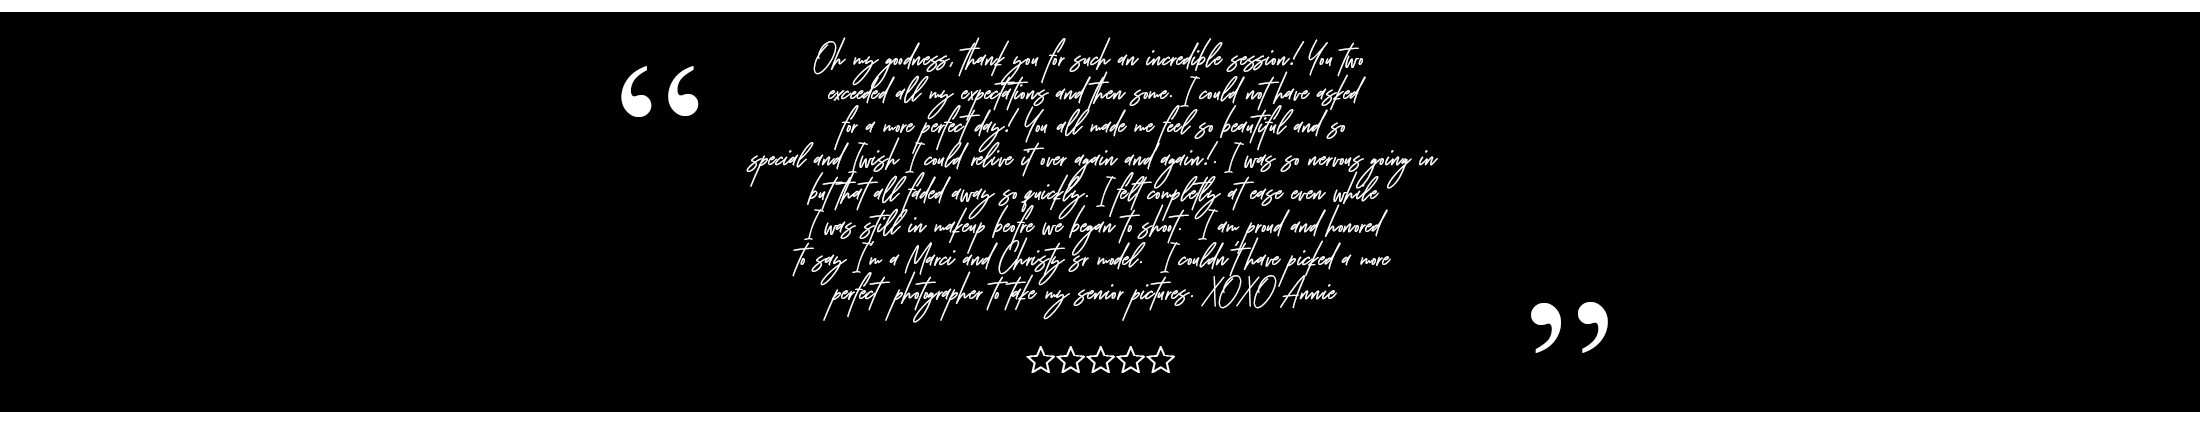 “
Oh my goodness, thank you for such an incredible session! You two
exceeded all my expectations and then some. I could not have asked
for a more perfect day! You all made me feel so beautiful and so
special and Iwish I could relive it over again and again!. I was so nervous going in
but that all faded away so quickly. I felt completly at ease even while
I was still in makeup beofre we began to shoot. I am proud and honored
to say I'm a Marci and Christy sr model. I couldn't have picked a more
perfect photographer to take my senior pictures. XOXO Annie
”